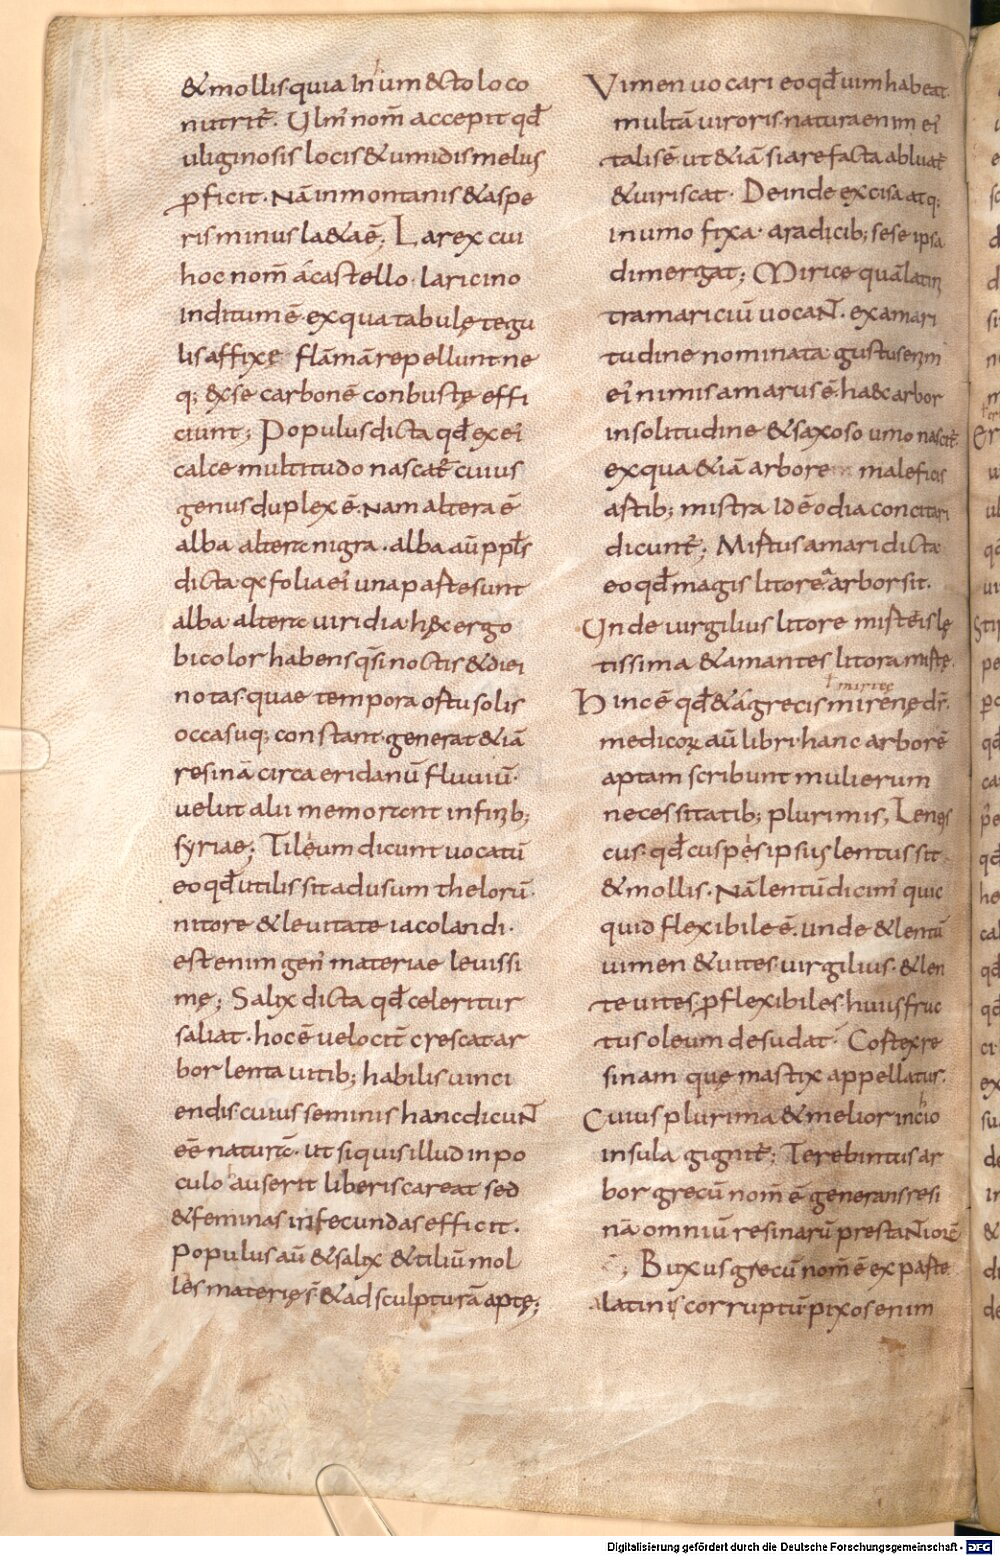 &mollis quia In umecto loco
nutrit̄. Ulm' nom̄ accepit qđ
uliginosis locis & umidis melius
ꝓficit. Nā in montanis & aspe
ris minus lȩta ē; Larex cui
hoc nom̄ a castello laricino
inditum ē. ex qua tabulę tegu
lis affixę flāmā repellunt ne
q; ex se carbonē conbustę effi
ciunt; Populus dicta qđ ex ei'
calce multitudo nascat̄ cuius
genus duplex ē. Nam altera ē
alba altera nigra. alba aū ppls̄
dicta qa folia ei' una parte sunt
alba altera uiridia. hęc ergo
bicolor habens qsi noctis & diei
notas quae tempora ortu solis
occasuq; constant. generat & iā
resinā circa eridanū fluuiū.
uelut alii memorant in finib;
syriae; Tileum dicunt uocatū
eo qđ utilis sit ad usum thelorū
nitore & leuitate iacolandi.
est enim gen' materiae leuissi
mę; Salix dicta qđ celeritur
saliat. hoc ē uelocit̄ crescat ar
bor lenta uitib; habilis uinci
endis cuius seminis hanc dicuNT
eē naturā. ut siquis illud in po
culo auserit liberis careat sed
& feminas infecundas efficit.
Populus aū & salix & tiliū mol
les materięs & ad sculpturā aptę;
Vimen uocari eo qđ uim habeat
multā uiroris. natura enim ei'
talis ē. ut & iā si arefacta abluat̄
& uiriscat. Deinde excisa atq;
in umo fixa. a radicib; sese ipsa
dimergat; Mirice quā latini
tramariciū uocaNT. ex amari
tudine nominata. gustus enim
ei' nimis amarus ē. haec arbor
in solitudine & saxoso umo nascit̄.
ex qua & iā arbore maleficis
artib; mistra id ē odia concitari
dicunt̄; Mirtus a mari dicta
eo qđ magis litorea arbor sit.
Unde uirgilius litore
tissima & amantes litora mirtę.
ł mirtęę
Hinc ē qđ & a grecis mirenę dr̄.
medicoꝝ aū libri hanc arborē
aptam scribunt mulierum
necessitatib; plurimis; Lentis
cus. qđ cuspes ipsius lentus sit
& mollis. Nā lentū dicim' quic
quid flexibile ē. unde & lentū
uimen & uites. uirgilius. & len
te uites. ꝓ flexibiles. huius fruc
tus oleum desudat. Cortex re
sinam quę mastix appellatur.
Cuius plurima & melior in chio
insula gignit̄; Terebintus ar
bor grecū nom̄ ē generans resi
nā omniū resinarū prestaNTiorē
; Buxus grecū nom̄ ē ex parte
a latinis corruptū pixos enim
Digitalisierung gefördert durch die Deutsche Forschungsgemeinschaft - DFG